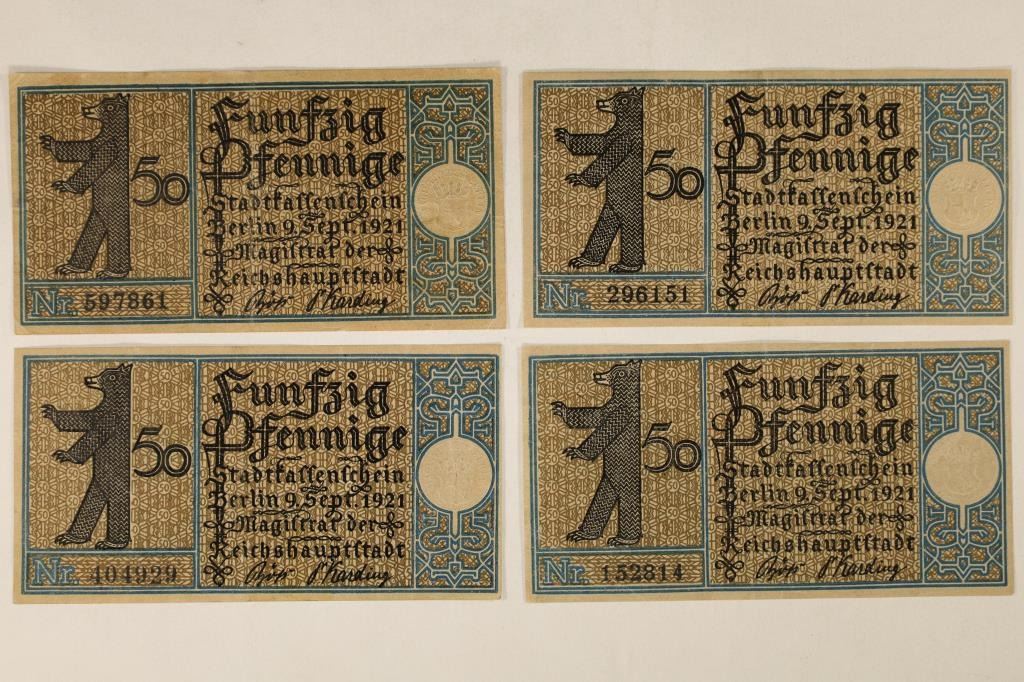 50
Fünfzig
Pfennige
Stadtkaſſenſchein
Berlin 9. Sept. 1921
Magiſtrat der
Reichshauptſtadt
Nr. 597861
Böß P Harding
50
Fünfzig
Pfennige
Stadtkaſſenſchein
Berlin 9. Sept. 1921
Magiſtrat der
Reichshauptſtadt
Nr. 296151
Böß P Harding
50
Fünfzig
Pfennige
Stadtkaſſenſchein
Berlin 9. Sept. 1921
Magiſtrat der
Reichshauptſtadt
Nr. 404929
Böß P Harding
50
Fünfzig
Pfennige
Stadtkaſſenſchein
Berlin 9. Sept. 1921
Magiſtrat der
Reichshauptſtadt
Nr. 152814
Böß P Harding